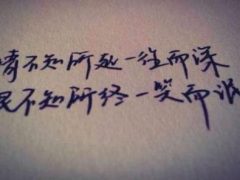 情不知所起一往而深
恨不知所终一笑而泯